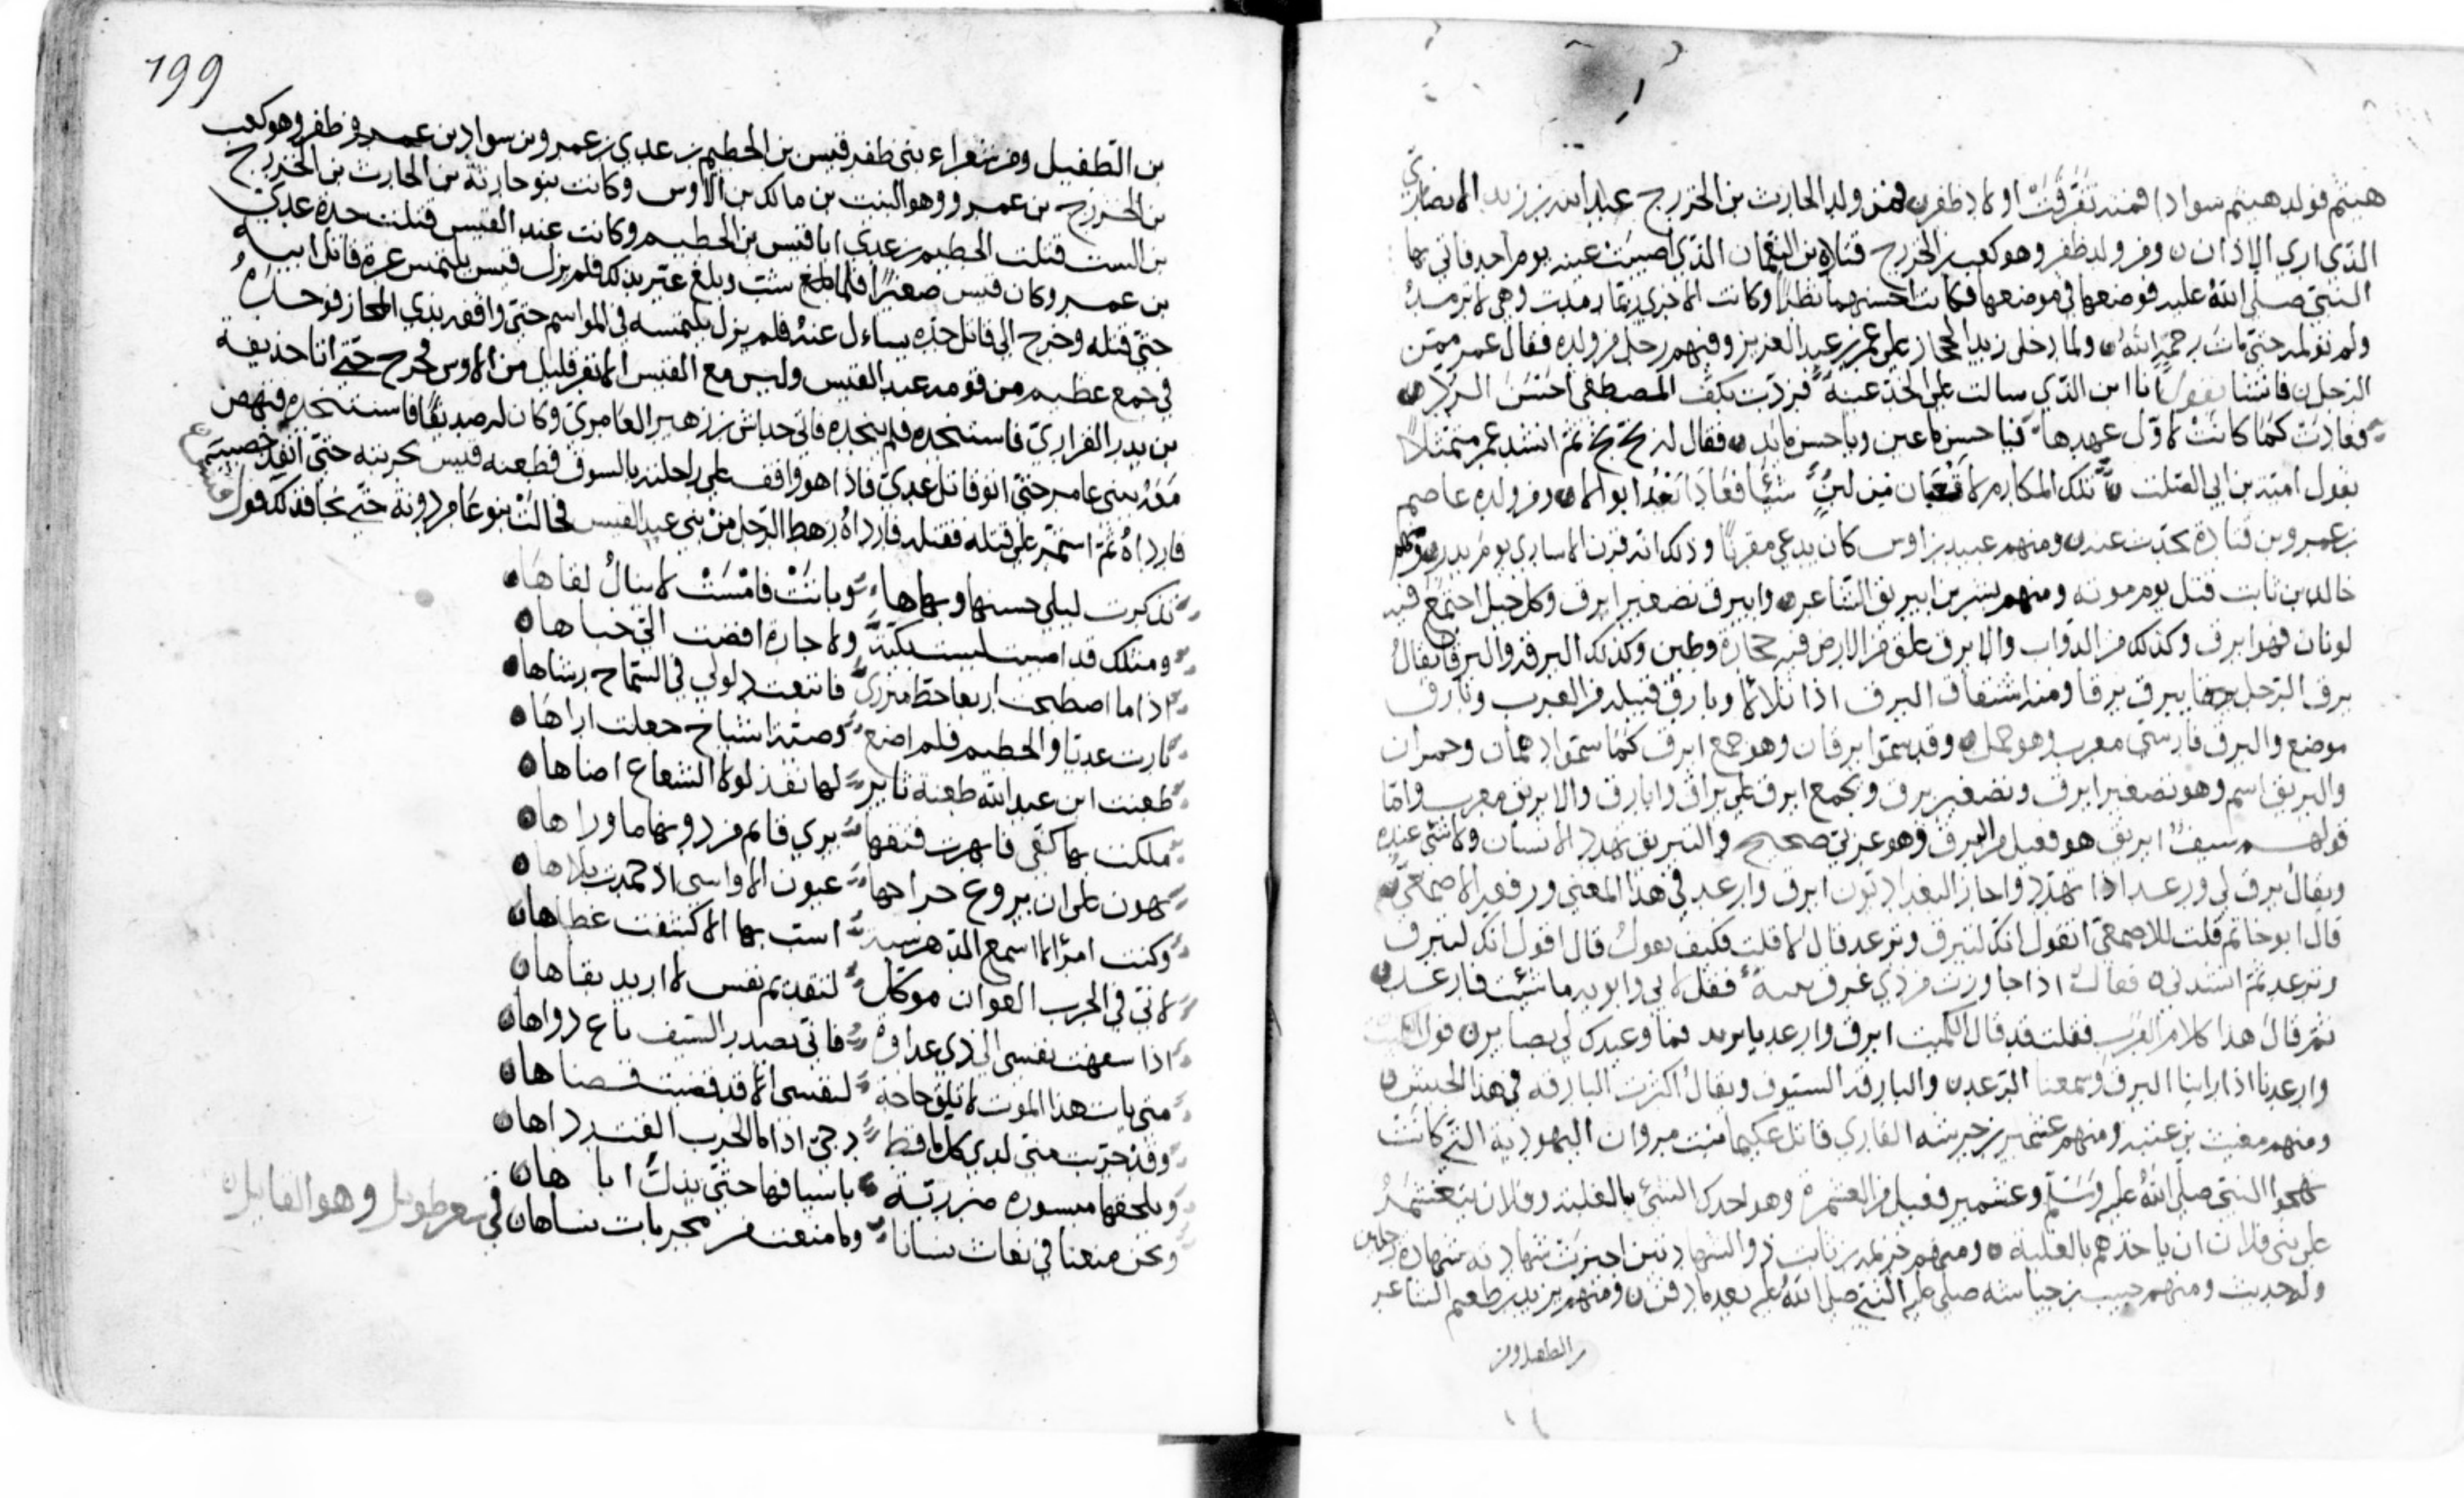 هيثم فولد هيثم سوادا فمنه تفرقت اولاد ظفر فمن ولد الحارث بن الخزرج عبد الله بن زيد الانصاري
الذي اري الاذان ومن ولد ظفر وهو كعب بن الخزرج قتادة بن النعمان الذي اصيبت عينه يوم احد فاتي بها
النبي صلى الله عليه فوضعها في موضعها فكانت احسنهما نظرا وكانت الاخرى ربما رمدت وهي لا ترمد
ولم تؤلمه حتى مات رحمه الله ولما دخل زيد الحجاز على عمر بن عبد العزيز وفيهم رجل من ولده فقال عمر ممن
الرجل فانشا يقول انا ابن الذي سالت على الخد عينه فردت بكف المصطفى احسن الرد
فعادت كما كانت لاول عهدها فيا حسن ما عين ويا حسن ما يد فقال له بخ بخ ثم انشد عمر متمثلا
بقول امية بن ابي الصلت تلك المكارم لا قعبان من لبن شيبا فعادا بعد ابوالا ومن ولده عاصم
بن عمرو بن قتادة يحدث عنه ومنهم عبيد بن اوس كان يدعى مقرنا وذلك انه قرن الاسارى يوم بدر ومنهم
خالد بن ثابت قتل يوم مؤته ومنهم بشر بن ابيرق الشاعر وابيرق تصغير ابرق وكل حبل اجتمع فيه
لونان فهو ابرق وكذلك من الدواب والابرق علق من الارض فيه حجارة وطين وكذلك البرقة والبرقا يقال
برق الرجل يبرق برقا ومنه اشتقاق البرق اذا تلالا وبارق قبيلة من العرب وبارق
موضع والبرق فارسي معرب وهو حمل وقد سموا برقان وهو جمع ابرق كما سموا دهمان وحمران
والبريق اسم وهو تصغير ابرق وتصغير برق ويجمع ابرق على براق وابارق والابريق معرب واما
قولهم سيف ابريق هو فعيل من البرق وهو عربي صحيح والتبريق تهدد الانسان ولا شي عنده
ويقال برق لي ورعد اذا تهدد واجاز البغداديون ابرق وارعد في هذا المعنى ودفعه الاصمعي
قال ابو حاتم قلت للاصمعي اتقول انك لتبرق وترعد قال لا قلت فكيف تقول قال اقول انك لتبرق
وترعد ثم انشدني فقال اذا جاوزت من ذي عرق ثنية فقل لابي قابوس ما شئت فارعد
ثم قال هذا كلام العرب فقلت قد قال الكميت ابرق وارعد يا يزيد فما وعيدك لي بضاير
وارعدنا اذا راينا البرق وسمعنا الرعد والبارقة السيوف ويقال اكثرت البارقة في هذا الجيش
ومنهم مغيث بن عتبة ومنهم عشمير بن خرشة القاري قاتل عكيما بنت مروان اليهودية التي كانت
تهجوا النبي صلى الله عليه وسلم وعشمير فعيل من العشمرة وهو اخذك الشي بالغلبة وفلان يتعشمر
على بني فلان ان ياخذهم بالغلبة ومنهم خزيمة بن ثابت ذو الشهادتين اجيزت شهادته شهادة رجلين
وله حديث ومنهم حبيب بن حباشة صلى عليه النبي صلى الله عليه بعدما دفن ومنهم يزيد بن طعيم الشاعر
بن الطفيل ومن
199
بن الطفيل ومن شعراء بني ظفر قيس بن الخطيم بن عدي بن عمرو بن سواد بن عمرو بن ظفر وهو كعب
بن الخزرج بن عمرو وهو النبت بن مالك بن الاوس وكانت بنو حارثة بن الحارث بن الخزرج
بن النبت قتلت الخطيم بن عدي ابا قيس بن الخطيم وكانت عبد القيس قتلت جده عدي
بن عمرو وكان قيس صغيرا فلما بلغ شب وبلغ عير بذلك فلم يزل قيس يلتمس غرة قاتل ابيه
حتى قتله وخرج الى قاتل جده يساءل عنه فلم يزل يلتمسه في المواسم حتى وافقه بذي المجاز فوجده
في جمع عظيم من قومه عبد القيس وليس مع القيس الا نفر قليل من الاوس فخرج حتى اتا حذيفة
بن بدر الفزاري فاستنجده فلم ينجده فاتى خداش بن زهير العامري وكان له صديقا فاستنجده فنهض
معه ببني عامر حتى اتو قاتل عدي فاذا هو واقف على راحلته بالسوق فطعنه قيس بحربته حتى انفذ خصييه
فارداه ثم استمر على قتله فقتله فاراده رهط الرجل من بني عبد القيس فحالت بنو عامر دونه حتى نجا فذلك قول
تذكرت ليلى حسنها وبهاها وبانت فامست لا ينال لقاها
ومثلك قد اصبيت ليست بكنة ولا جارة افضت الي خباها
اذا ما اصطبحت اربعا حط ميزري فاتبعت دلوي في السماح رشاها
ثارت عديا والخطيم فلم اضع وصية اشياخ جعلت ازاها
طعنت ابن عبد الله طعنة ثاير لها نفذ لولا الشعاع اضاها
ملكت بها كفي فانهرت فتقها يرى قايم من دونها ما وراها
يهون على ان يروع جراحها عيون الاواسي اذ حمدت بلاها
وكنت امرا لا اسمع الدهر سبة اسب بها الا كشفت غطاها
لاني في الحرب العوان موكل لتقديم نفس لا اريد بقاها
اذا سقمت نفسي الى ذي عداوة فاني بصدر السيف باغ دواها
متى يات هذا الموت لا تلق حاجة لنفسي الا قد قضيت قضاها
وقد جربت مني لدى كل ماقط دحي اذا ما الحرب القت رداها
ويلحقها مبسورة ضرزنة باسيافها حتى يذل اباها
ونحن منعنا في بعاث نسانا وما منعت من مخزيات نساها في شعر طويل وهو القايل